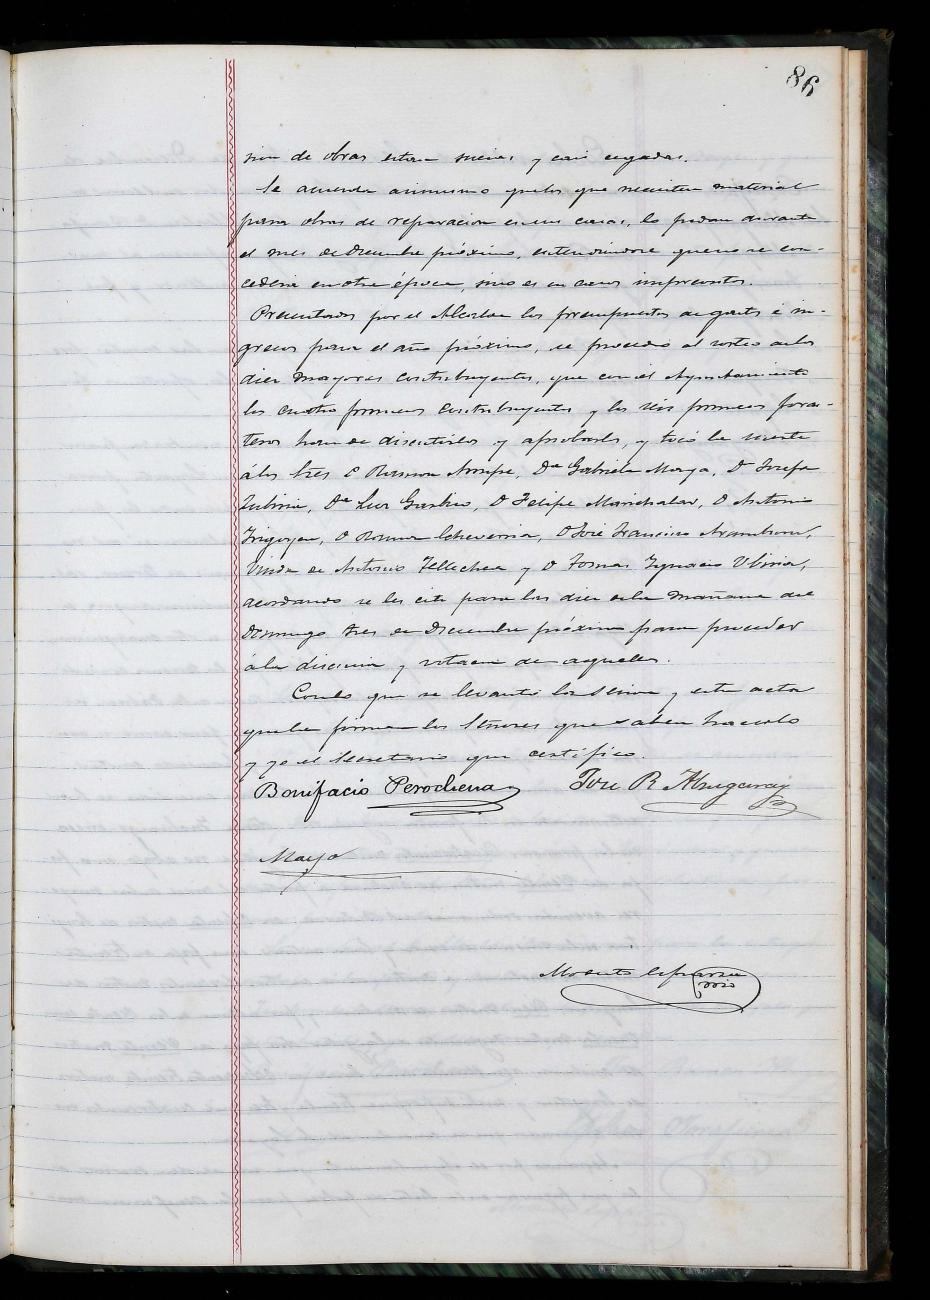 86
sion de obras estan sucias y casi cegadas.
Se acuerda asimismo que los que necesiten material
para obras de reparacion en sus casas, lo pidan durante
el mes de Diciembre próximo, entendiendose que no se con-
cederá en otra época, sino es en casos imprevistos.
Presentados por el Alcalde los presupuestos de gastos é in-
gresos para el año próximo, se procedió al sorteo de los
diez mayores contribuyentes, que con el Ayuntamiento
los cuatro primeros contribuyentes y los seis primeros foras-
teros han de discutirlos y aprobarlos, y tocó la suerte
á los tres D Ramon Da Gabriela Maya, D Josefa
Da Luz D Felipe Marichalar, D Antonio
Irigoyen, D Roman Echeverria, D José Francisco Aramburu,
Viuda de Antonio Tellechea y D Tomas Ygnacio Ubiria,
acordando se les cite para las diez de la mañana del
Domingo tres de Diciembre próximo para proceder
á la discusion y votacion de aquellos.
Con lo que se levantó la sesion y esta acta
que la firman los Señores que saben hacerlo
y yo el Secretario que certifico.
Bonifacio Perochena Jose R
Maya
Modesto